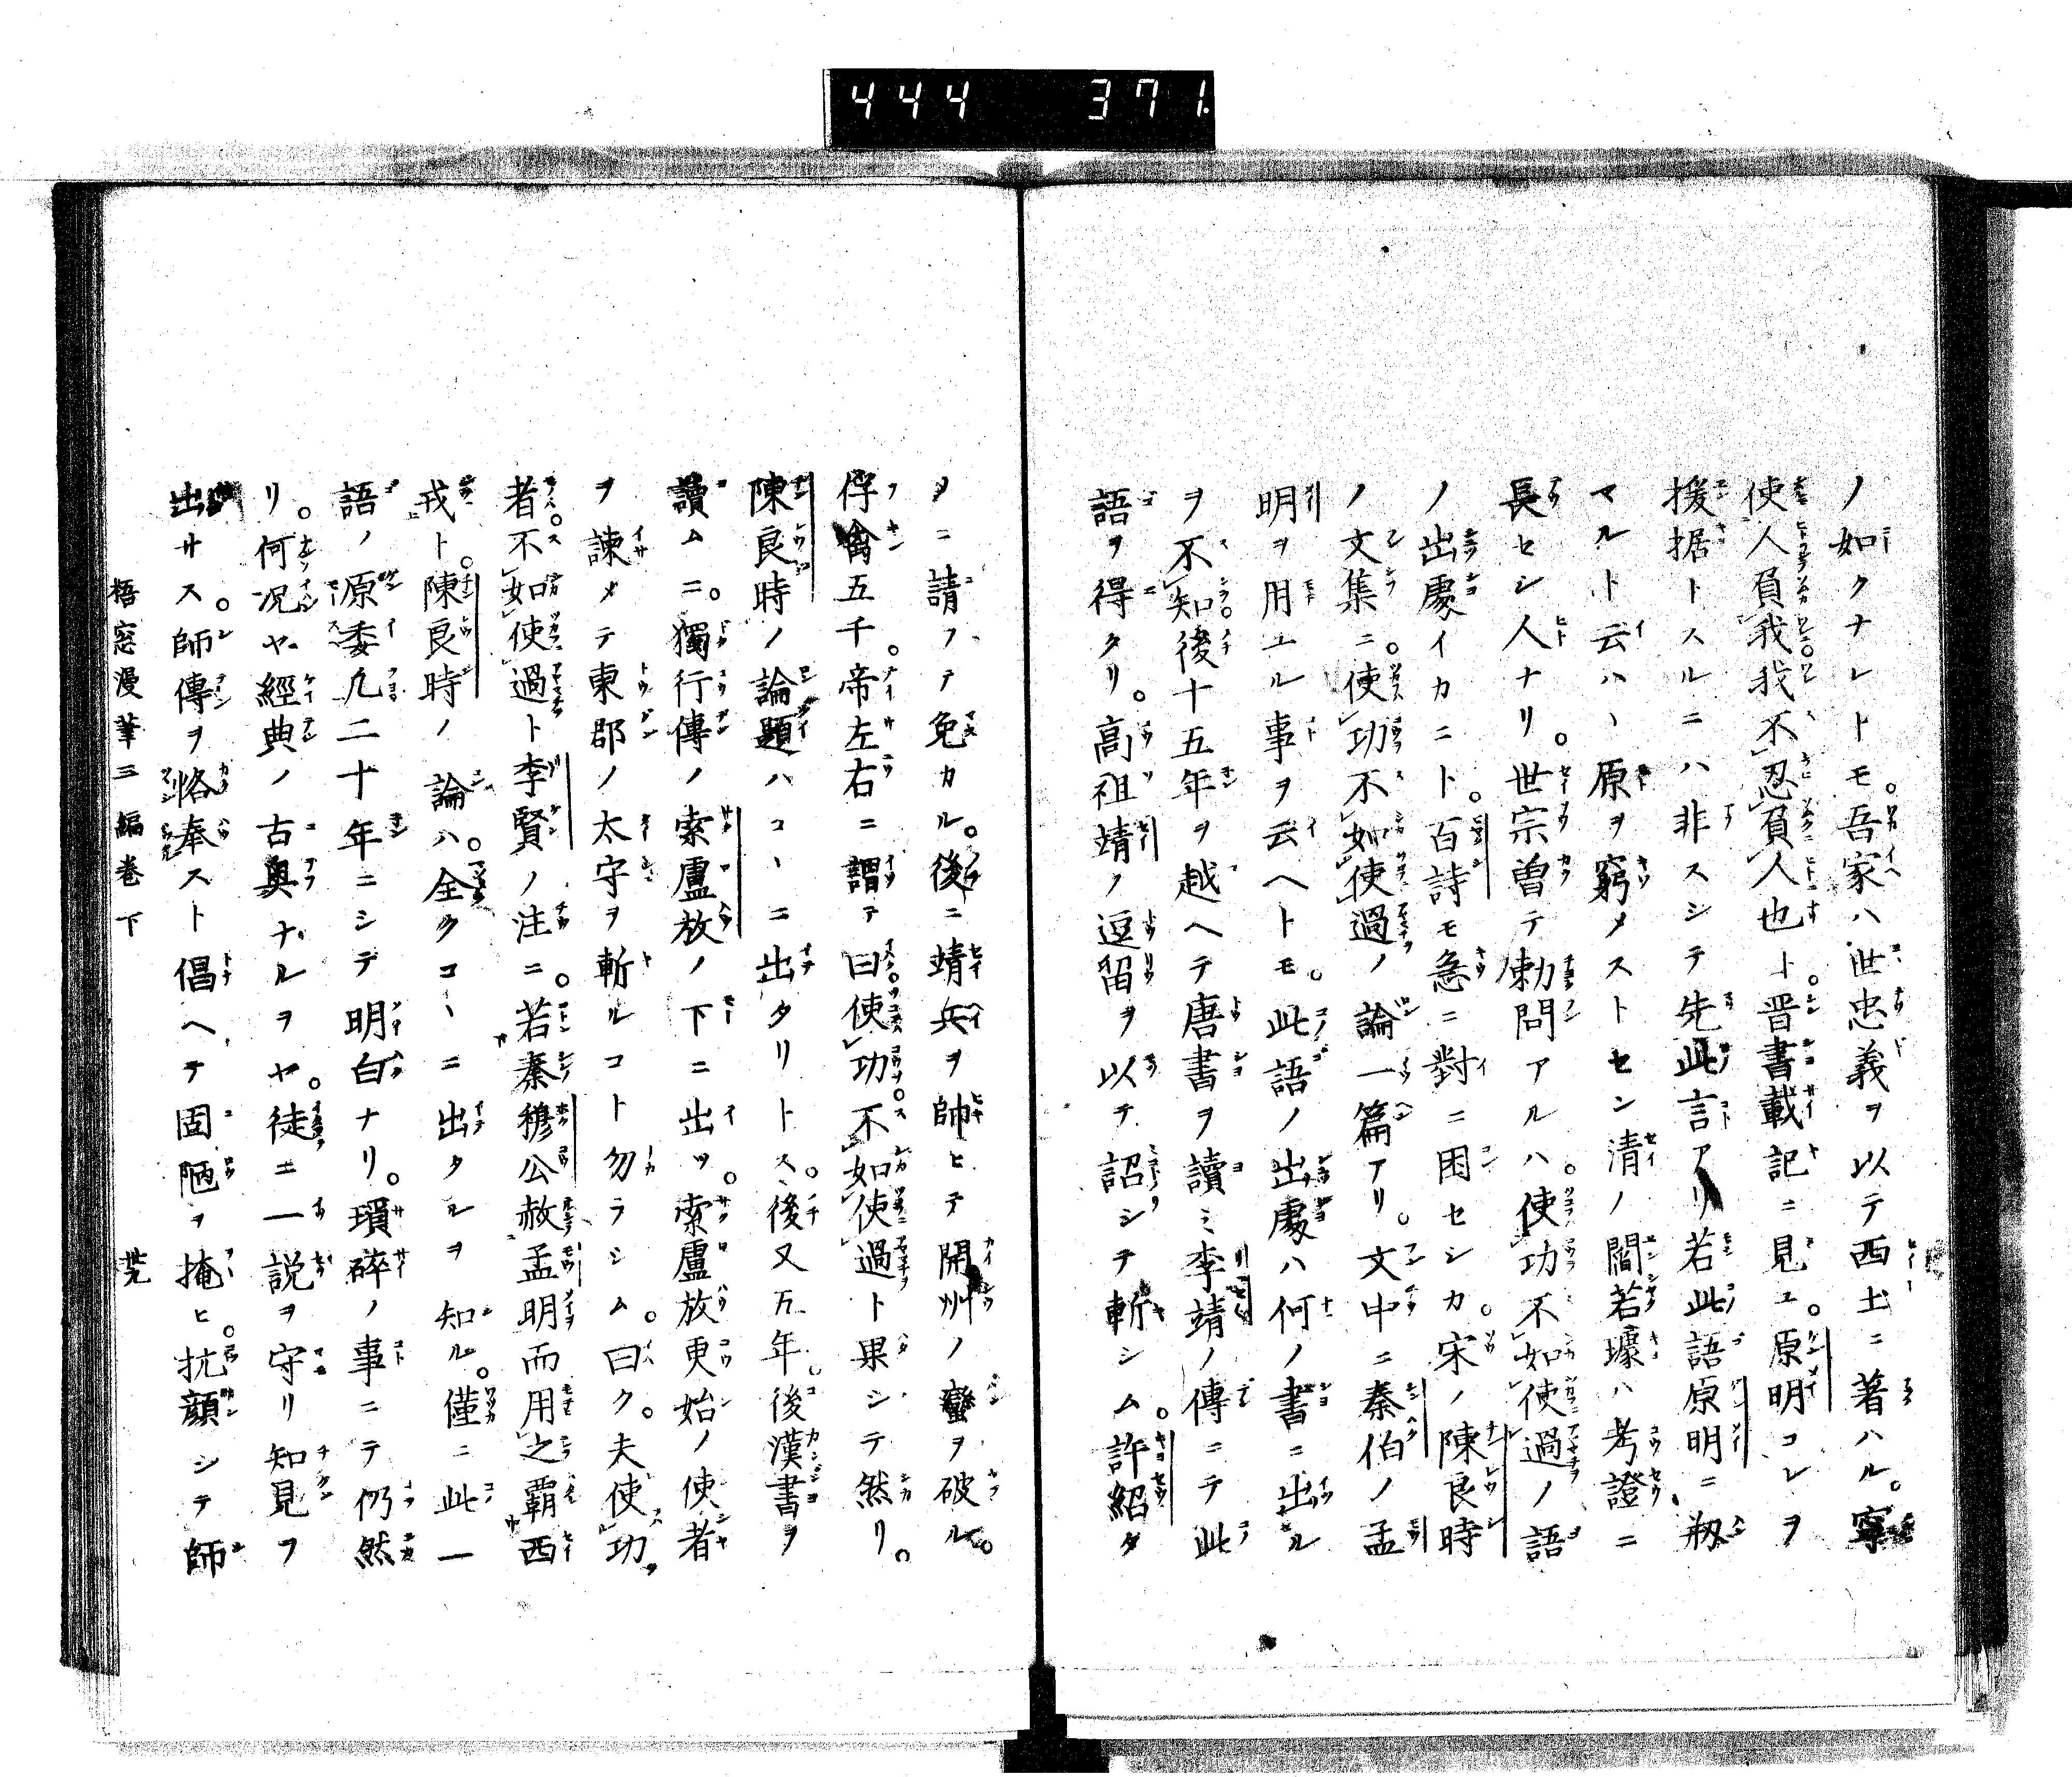 444 371
ノ如クナレトモ。吾家ハ世忠義ヲ以テ西土ニ著ハル。寧
使人負我我不忍負人也ト。晋書載記ニ見ユ。原明コレヲ
援据トスルニハ非スシテ先此言アリ若此語原明ニ剏
マルト云ハヽ原ヲ窮メストセン清ノ閻若璩ハ考證ニ
長セシ人ナリ。世宗曽テ勅問アルハ。使功不如使過ノ語
ノ出處イカニト。百詩モ急ニ對ニ困セシカ。宋ノ陳良時
ノ文集ニ。使功不如使過ノ論一篇アリ。文中ニ秦伯ノ孟
明ヲ用エル事ヲ云ヘトモ。此語ノ出處ハ何ノ書ニ出ル
ヲ不知。後十五年ヲ越ヘテ唐書ヲ讀ミ李靖ノ傳ニテ此
語ヲ得タリ。高祖靖ノ逗留ヲ以テ詔シテ斬シム。許紹タ
メニ請フテ免カル。後ニ靖兵ヲ帥ヒテ開州ノ蠻ヲ破ル。
俘禽五千。帝左右ニ謂テ曰使功。不如使過ト果シテ然リ。
陳良時ノ論題ハコヽニ出タリトス。後又五年。後漢書ヲ
讀ムニ。獨行傳ノ索盧放ノ下ニ出ツ。索盧放更始ノ使者
ヲ諫メテ東郡ノ太守ヲ斬ルコト勿ラシム。曰ク。夫使功
者。不如使過ト李賢ノ注ニ。若秦穆公赦孟明而用之覇西
戎ト。陳良時ノ論ハ。全クコヽニ出タルヲ知ル。僅ニ此一
語ノ原委凡二十年ニシテ明白ナリ。瑣碎ノ事ニテ仍然
リ。何况ヤ經典ノ古奥ナルヲヤ。徒ニ一説ヲ守リ知見ヲ
出サス。師傳ヲ恪奉スト倡ヘテ固陋ヲ掩ヒ。抗顔シテ師
梧窓漫筆三編巻下 世九